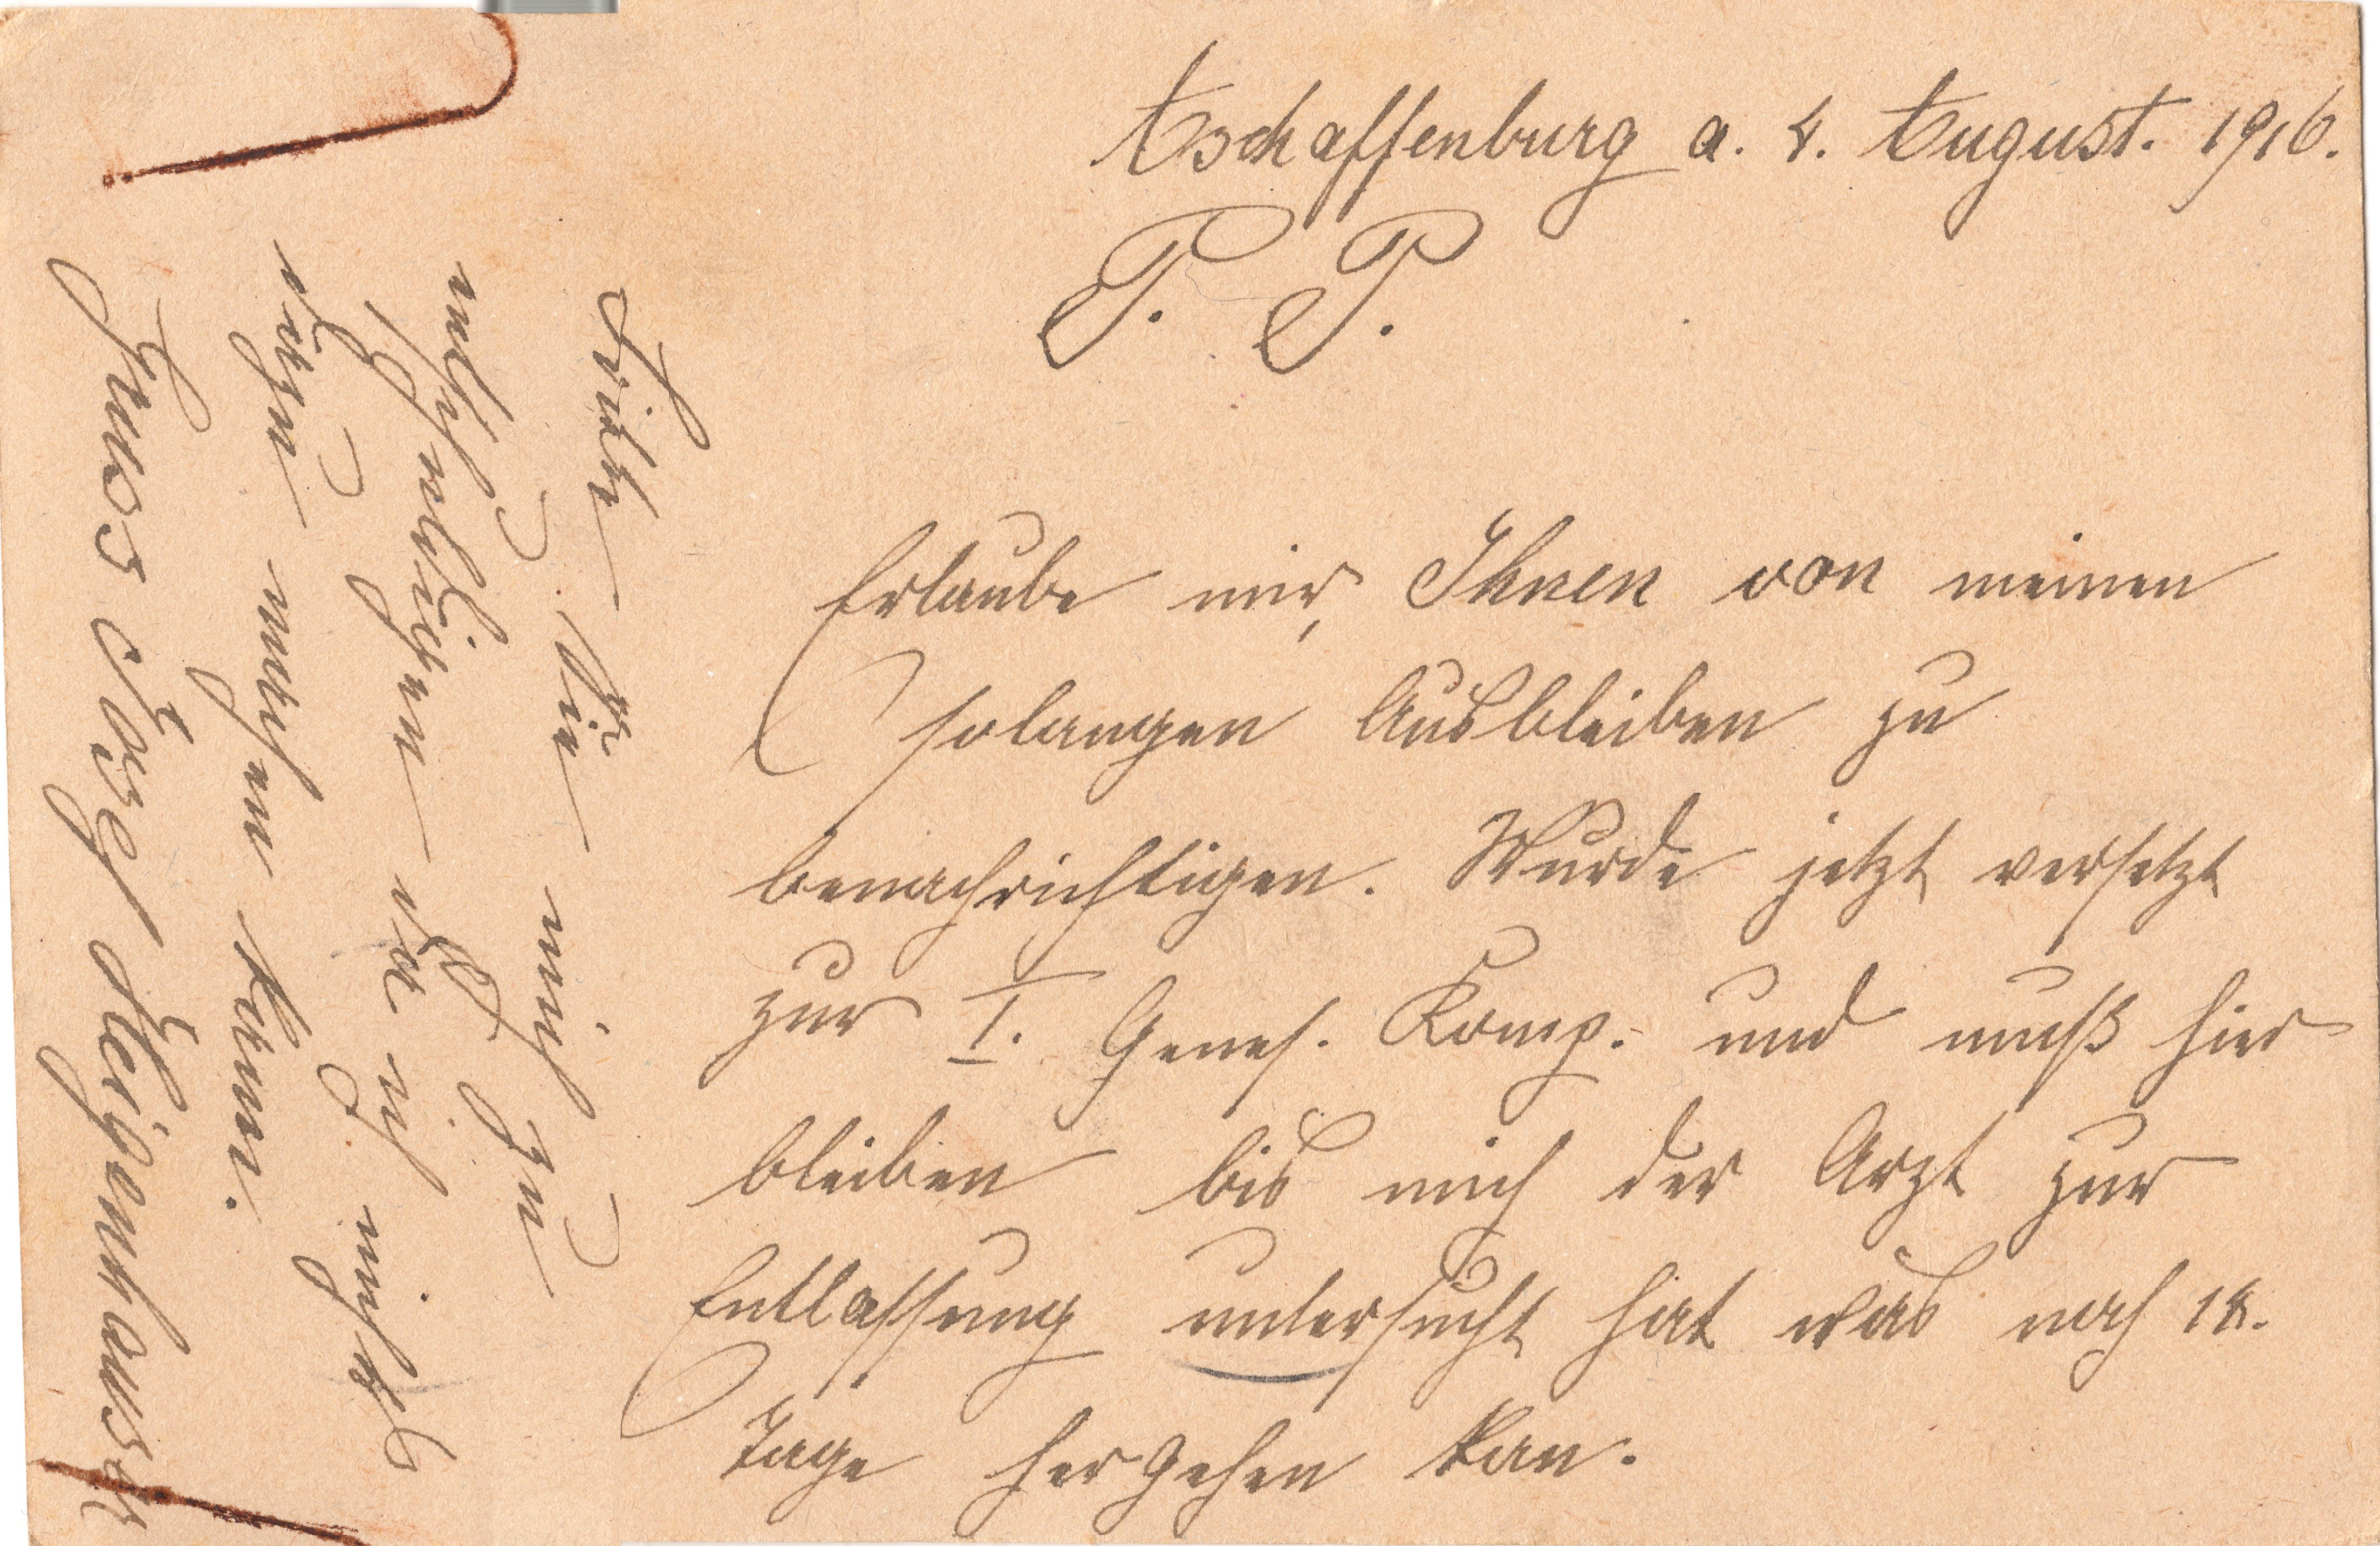 Aschaffenburg a. 4. August. 1916.
P. P.
Erlaube mir, Ihnen von meinen
solangen Ausbleiben zu
benachrichtigen. Wurde jetzt versetzt
zur I. Genes. Komp. und muß hier
bleiben bis mich der Arzt zur
Entlassung untersucht hat was noch 14.
Tage her gehen kan.
Bitte Sie mich zu
entschuldigen da ich nichts
dazu machen kann.
Hans Josef Steigenhauser